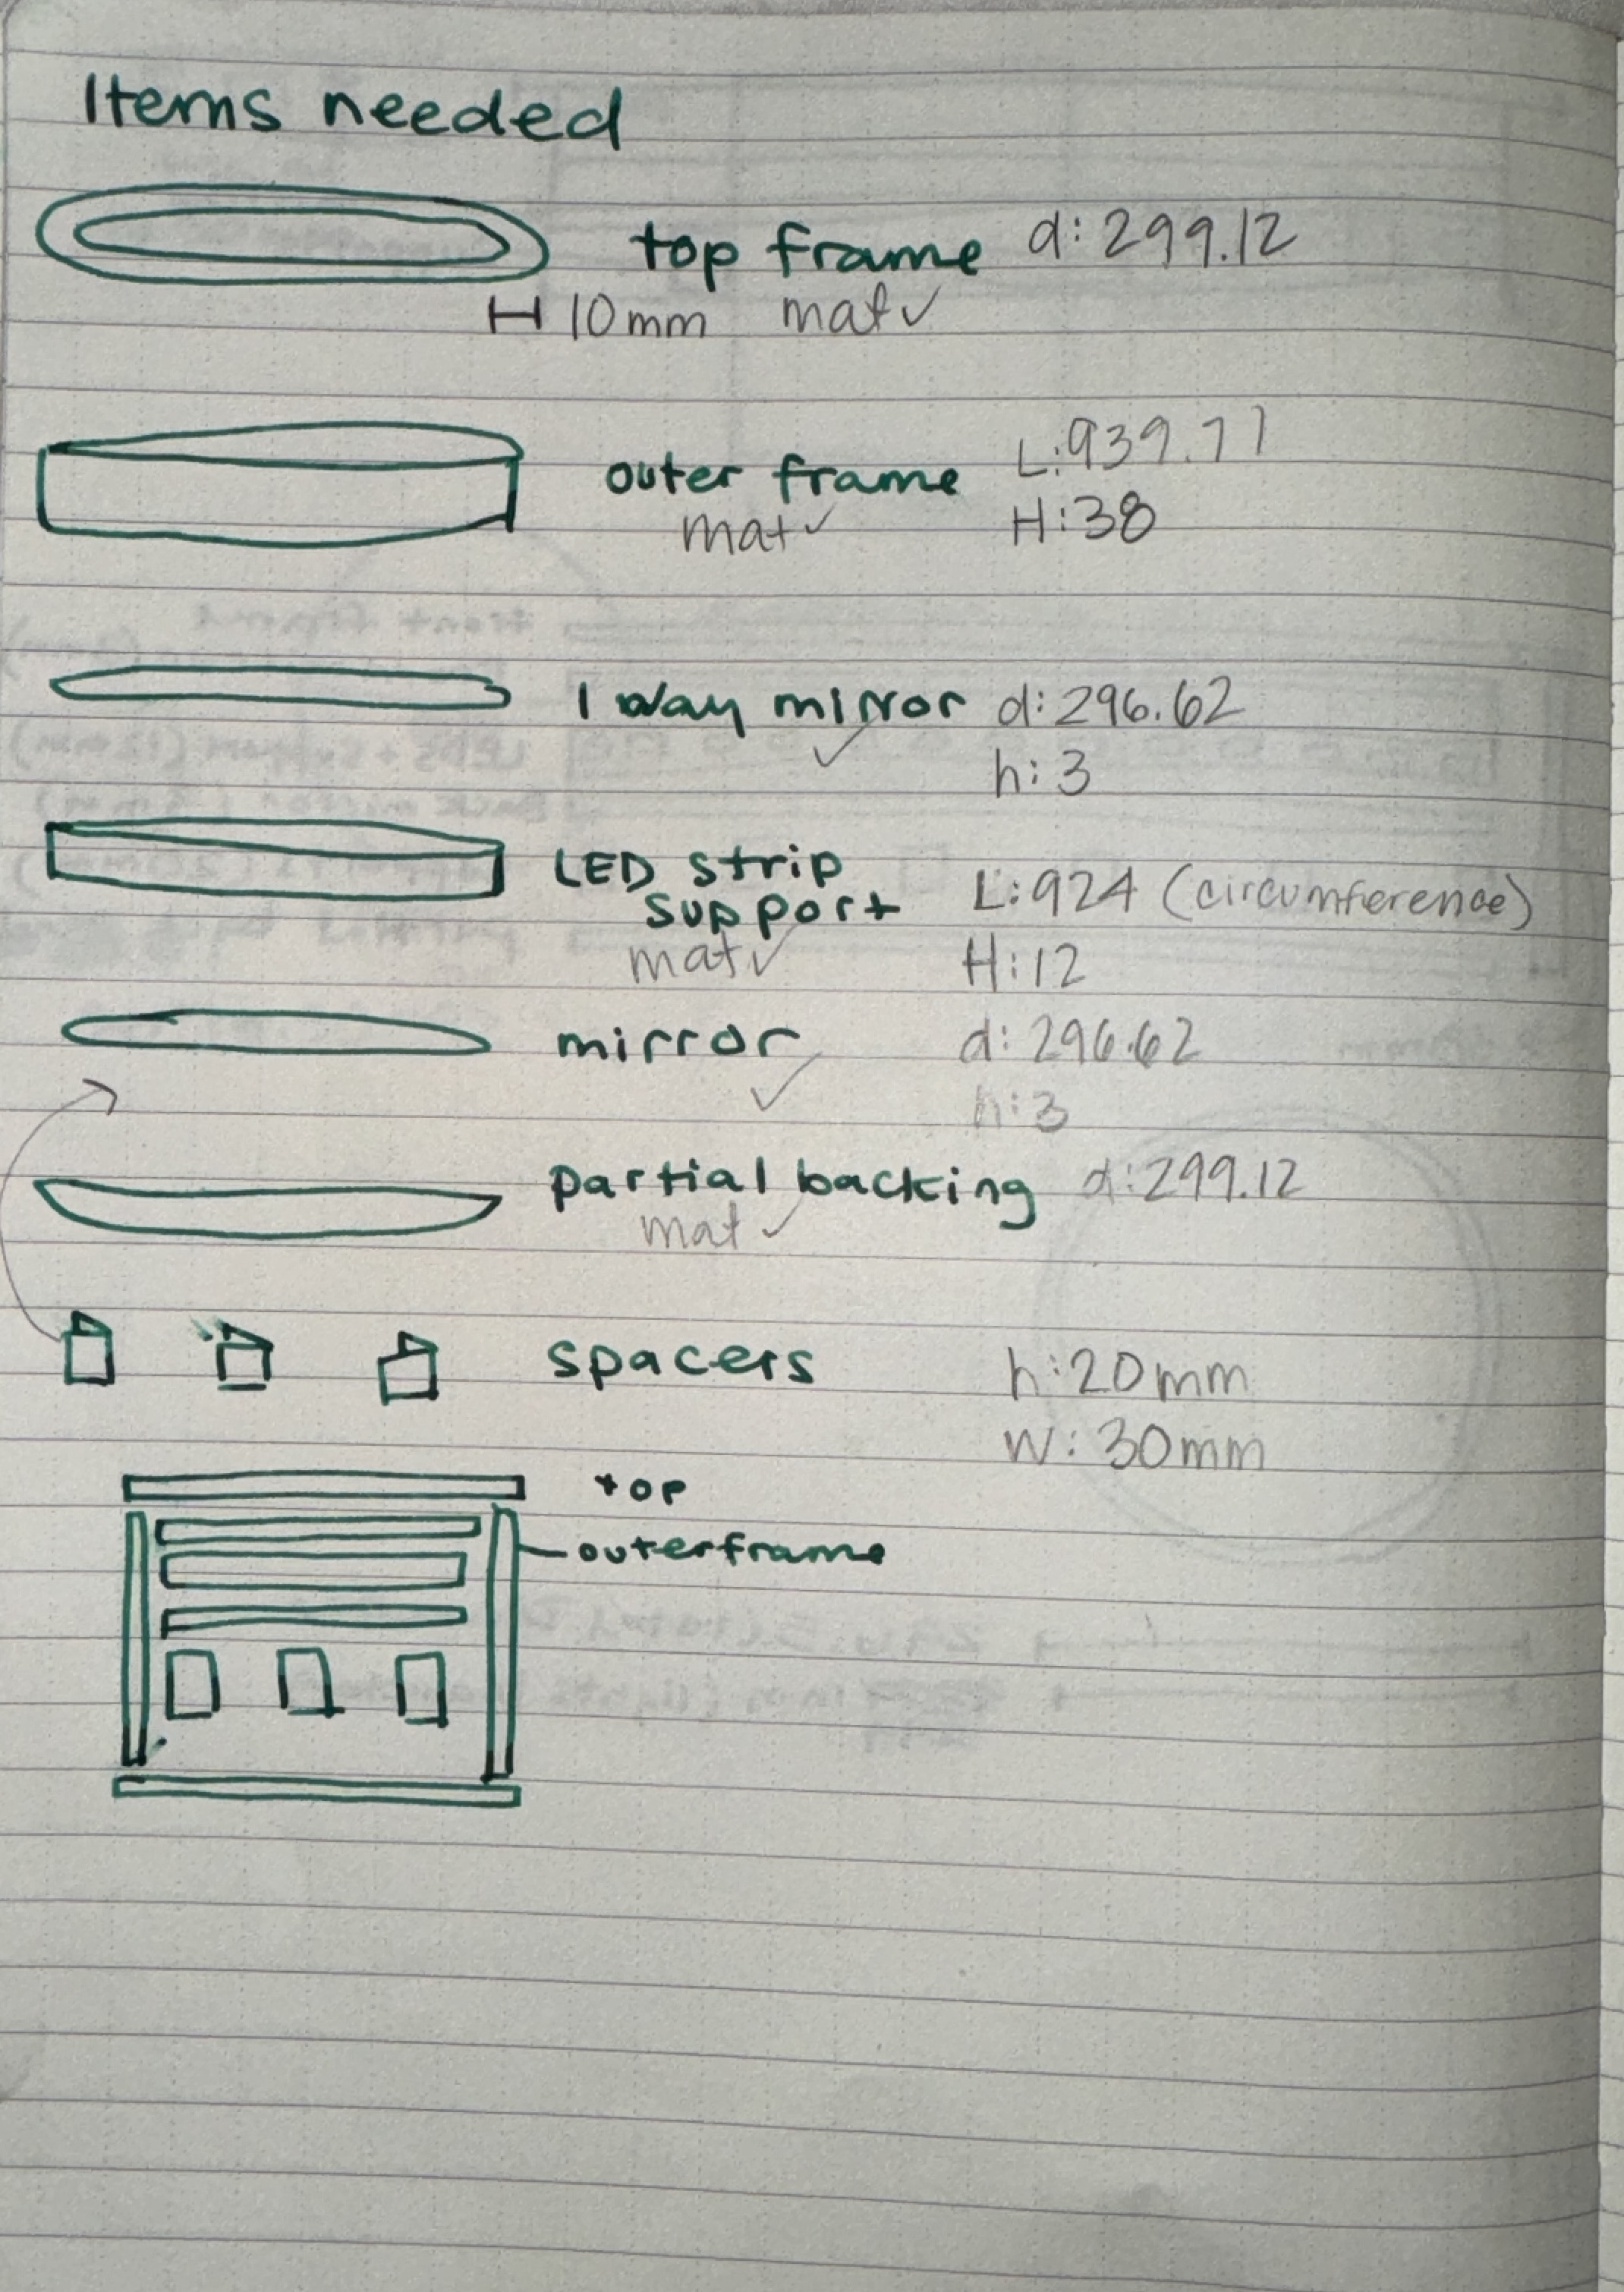 Items needed
top frame d: 299.12
10mm mat ✓
outer frame L: 939.71
mat ✓ H: 38
1 way mirror d: 296.62
✓ h: 3
LED strip
support L: 924 (circumference)
mat ✓ H: 12
mirror d: 296.62
✓ h: 3
partial backing d: 299.12
mat ✓
spacers h: 20mm
W: 30mm
top
outerframe